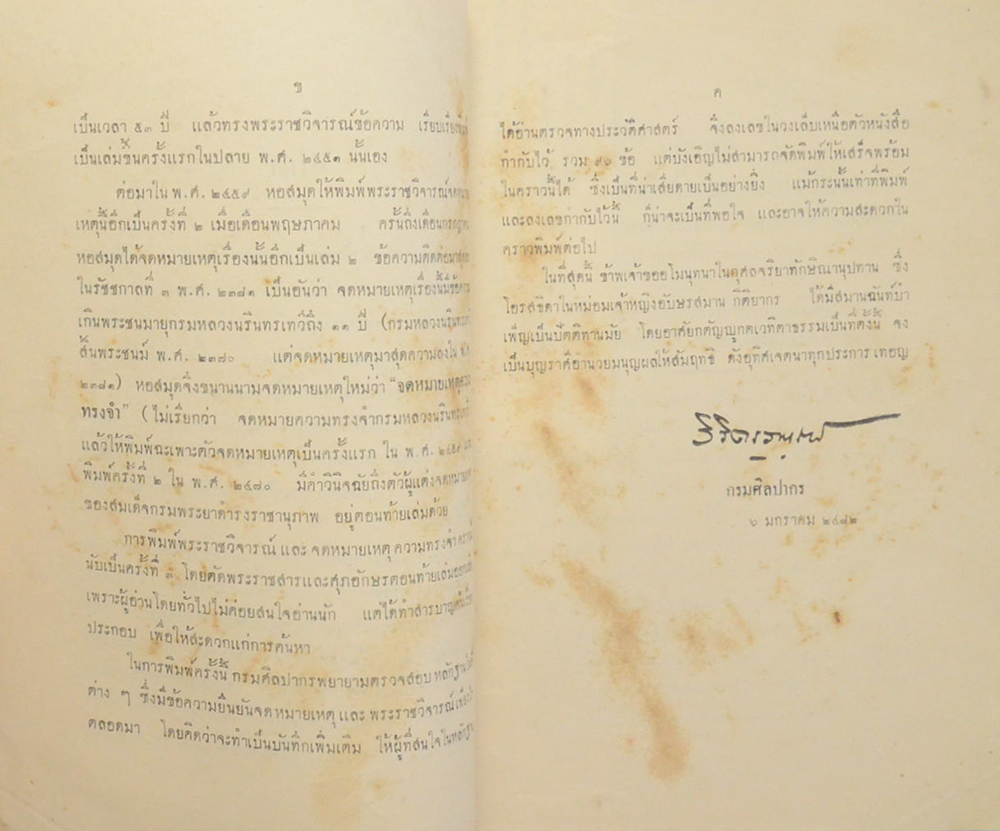 ข
เป็นเวลา ๕๓ ปี แล้วทรงพระราชวิจารณ์ข้อความ เรียบเรียง
เป็นเล่มขึ้นครั้งแรกในปลาย พ.ศ. ๒๔๕๑ นั้นเอง
ต่อมาใน พ.ศ. ๒๔๕๙ หอสมุดให้พิมพ์พระราชวิจารณ์
เหตุนี้อีกเป็นครั้งที่ ๒ เมื่อเดือนพฤษภาคม ครั้นถึงเดือน
หอสมุดได้จดหมายเหตุเรื่องนั้นอีกเป็นเล่ม ๒ ข้อความติดต่อมา
ในรัชกาลที่ ๓ พ.ศ. ๒๓๘๑ เป็นอันว่า จดหมายเหตุเรื่องนี้มีข้อความ
เกินพระชนมายุกรมหลวงนรินทรเทวีถึง ๑๑ ปี (กรมหลวงนรินทรเทวี
สิ้นพระชนม์ พ.ศ. ๒๓๗๐ แต่จดหมายเหตุมาสุดความลงใน พ.ศ.
๒๓๘๑) หอสมุดจึงขนานนามจดหมายเหตุใหม่ว่า “จดหมายเหตุความ
ทรงจำ” (ไม่เรียกว่า จดหมายความทรงจำกรมหลวงนรินทรเทวี
แล้วให้พิมพ์ฉะเพาะตัวจดหมายเหตุเป็นครั้งแรก ใน พ.ศ. ๒๔๕๙
พิมพ์ครั้งที่ ๒ ใน พ.ศ. ๒๔๘๐ มีคำวินิจฉัยถึงตัวผู้แต่งจดหมายเหตุ
ของสมเด็จกรมพระยาดำรงราชานุภาพ อยู่ตอนท้ายเล่มด้วย
การพิมพ์พระราชวิจารณ์ และ จดหมายเหตุ ความทรงจำ คราวนี้
นับเป็นครั้งที่ ๓ โดยตัดพระราชสารและศุภอักษรตอนท้ายเล่มออก
เพราะผู้อ่านโดยทั่วไปไม่ค่อยสนใจอ่านนัก แต่ได้ทำสารบาญ
ประกอบ เพื่อให้สะดวกแก่การค้นหา
ในการพิมพ์ครั้งนี้ กรมศิลปากรพยายามตรวจสอบ หลักฐาน
ต่าง ๆ ซึ่งมีข้อความยืนยันจดหมายเหตุ และ พระราชวิจารณ์
ตลอดมา โดยคิดว่าจะทำเป็นบันทึกเพิ่มเติม ให้ผู้ที่สนใจใน
ค
ได้อ่านตรวจทางประวัติศาสตร์ จึงลงเลขในวงเล็บเหนือตัวหนังสือ
กำกับไว้ รวม ๙๖ ข้อ แต่บังเอิญไม่สามารถจัดพิมพ์ให้เสร็จพร้อม
ในคราวนี้ได้ ซึ่งเป็นที่น่าเสียดายเป็นอย่างยิ่ง แม้กระนั้นเท่าที่พิมพ์
และลงเลขกำกับไว้นี้ ก็น่าจะเป็นที่พอใจ และอาจให้ความสะดวกใน
คราวพิมพ์ต่อไป
ในที่สุดนี้ ข้าพเจ้าขออโมนุทนาในกุศลจริยาทักษิณานุปทาน ซึ่ง
โอรสธิดาในหม่อมเจ้าหญิงอับษรสมาน กิติยากร ได้มีสมานฉันท์บำ
เพ็ญเป็นปัตติทานมัย โดยอาศัยกตัญญูกตเวทิตาธรรมเป็นที่ตั้งนี้ จง
เป็นบุญราศีอำนวยมนุญผลให้สัมฤทธิ ดังอุทิศเจตนาทุกประการ เทอญ
กรมศิลปากร
๖ มกราคม ๒๔๘๒